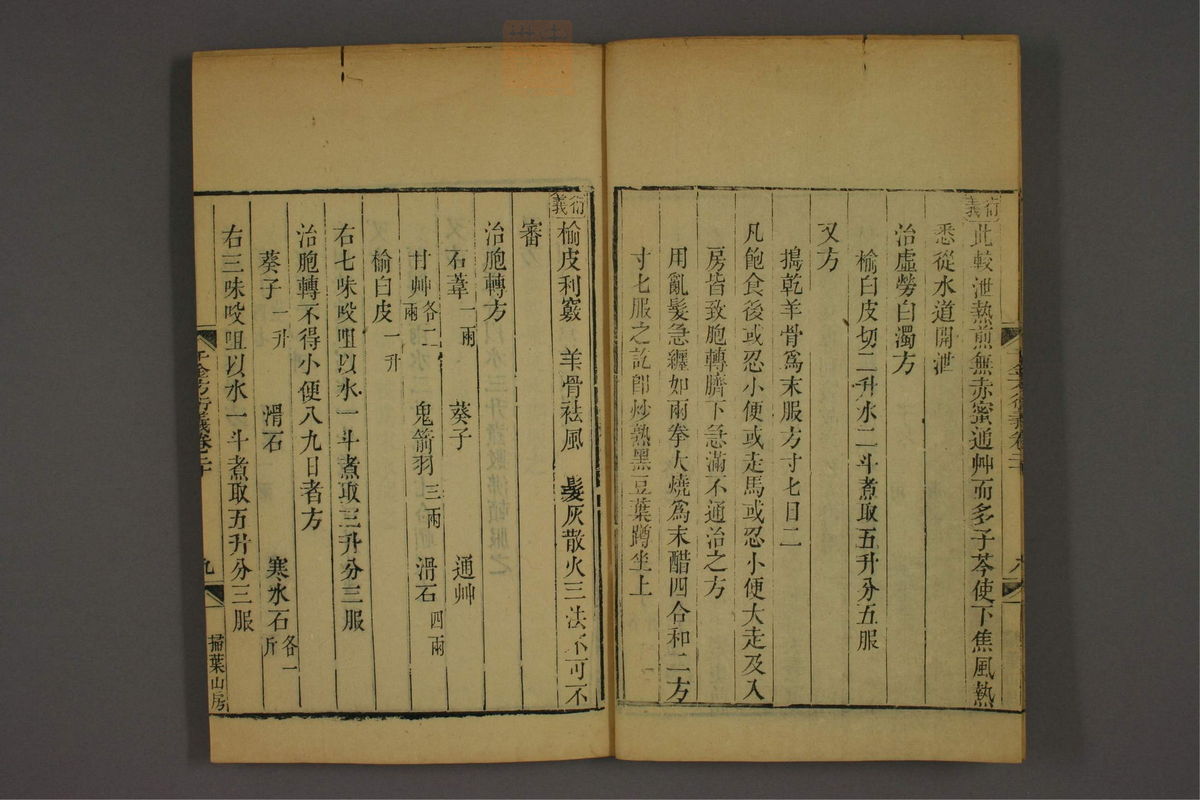 衍義此較泄熱煎無赤蜜通艸而多子芩使下焦風熱
悉從水道開泄
治虛勞白濁方
榆白皮切二升水二斗煮取五升分五服
又方
搗乾羊骨爲末服方寸匕日二
凡飽食後或忍小便或走馬或忍小便大走及入
房皆致胞轉臍下急滿不通治之方
用亂髮急纒如兩拳大燒爲末醋四合和二方
寸匕服之訖卽炒熟黑豆葉蹲坐上
千金方衍義卷二十
八
衍義榆皮利竅 羊骨祛風 髮灰散火三法不可不
審
治胞轉方
石葦一兩 葵子 通艸
甘艸各二兩 鬼箭羽三兩 滑石四兩
榆白皮一升
右七味㕮咀以水一斗煮取三升分三服
治胞轉不得小便八九日者方
葵子一升 滑石 寒水石各一斤
右三味㕮咀以水一斗煮取五升分三服
千金方衍義卷二十
九
掃葉山房